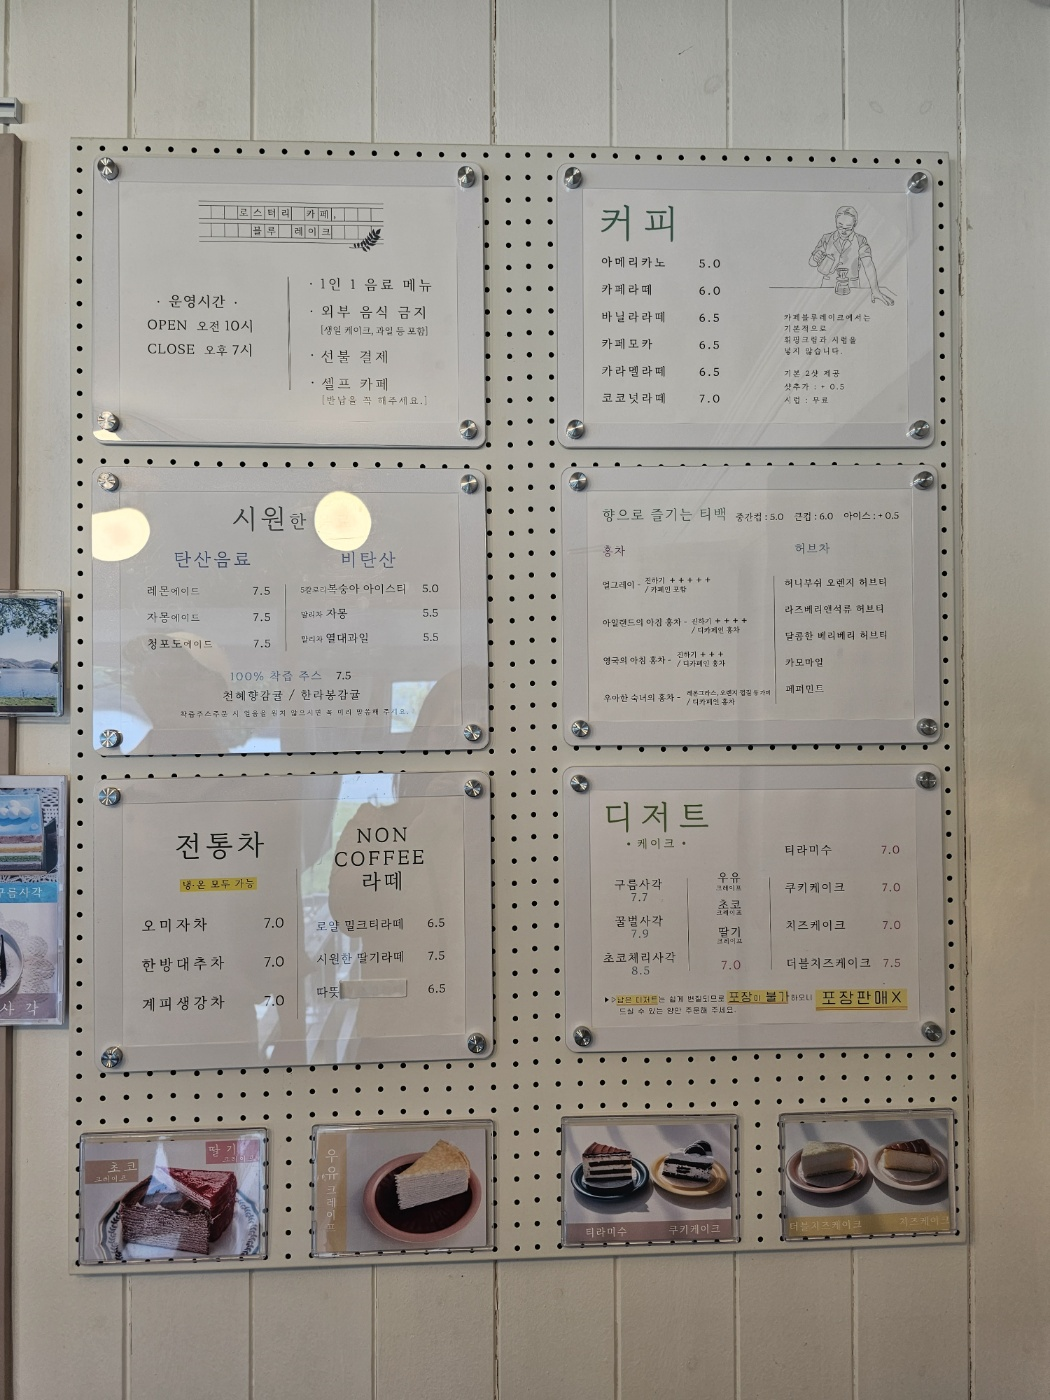 로스터리 카페,
블루 레이크
· 운영시간 ·
OPEN 오전 10시
CLOSE 오후 7시
· 1인 1 음료 메뉴
· 외부 음식 금지
[생일 케이크, 과일 등 포함]
· 선불 결제
· 셀프 카페
[반납을 꼭 해주세요.]
커피
아메리카노 5.0
카페라떼 6.0
바닐라라떼 6.5
카페모카 6.5
카라멜라떼 6.5
코코넛라떼 7.0
카페블루레이크에서는
기본적으로
휘핑크림과 시럽을
넣지 않습니다.
기본 2샷 제공
샷추가 : + 0.5
시럽 : 무료
시원한
탄산음료
레몬에이드 7.5
자몽에이드 7.5
청포도에이드 7.5
비탄산
5칼로리복숭아 아이스티 5.0
말리차 자몽 5.5
말리차 열대과일 5.5
100% 착즙 주스 7.5
천혜향감귤 / 한라봉감귤
착즙주스주문 시 얼음을 원치 않으시면 꼭 미리 말씀해 주세요.
향으로 즐기는 티백 중간컵 : 5.0 큰컵 : 6.0 아이스 : + 0.5
홍차
얼그레이 - 진하기 + + + + +
/ 카페인 포함
아일랜드의 아침 홍차 - 진하기 + + + +
/ 디카페인 홍차
영국의 아침 홍차 - 진하기 + + +
/ 디카페인 홍차
우아한 숙녀의 홍차 - 레몬그라스, 오렌지 껍질 등 가미
/ 디카페인 홍차
허브차
허니부쉬 오렌지 허브티
라즈베리앤석류 허브티
달콤한 베리베리 허브티
카모마일
페퍼민트
전통차
냉·온 모두 가능
오미자차 7.0
한방대추차 7.0
계피생강차 7.0
NON
COFFEE
라떼
로얄 밀크티라떼 6.5
시원한 딸기라떼 7.5
따뜻 6.5
디저트
• 케이크 •
구름사각
7.7
꿀벌사각
7.9
초코체리사각
8.5
우유
크레이프
초코
크레이프
딸기
크레이프
7.0
티라미수 7.0
쿠키케이크 7.0
치즈케이크 7.0
더블치즈케이크 7.5
▶▷남은 디저트는 쉽게 변질되므로 포장이 불가하오니 포장판매X
드실 수 있는 양만 주문해 주세요.
구름사각
사각
초코
크레이프
딸기
크레이프
우유크레이프
티라미수
쿠키케이크
더블치즈케이크
치즈케이크